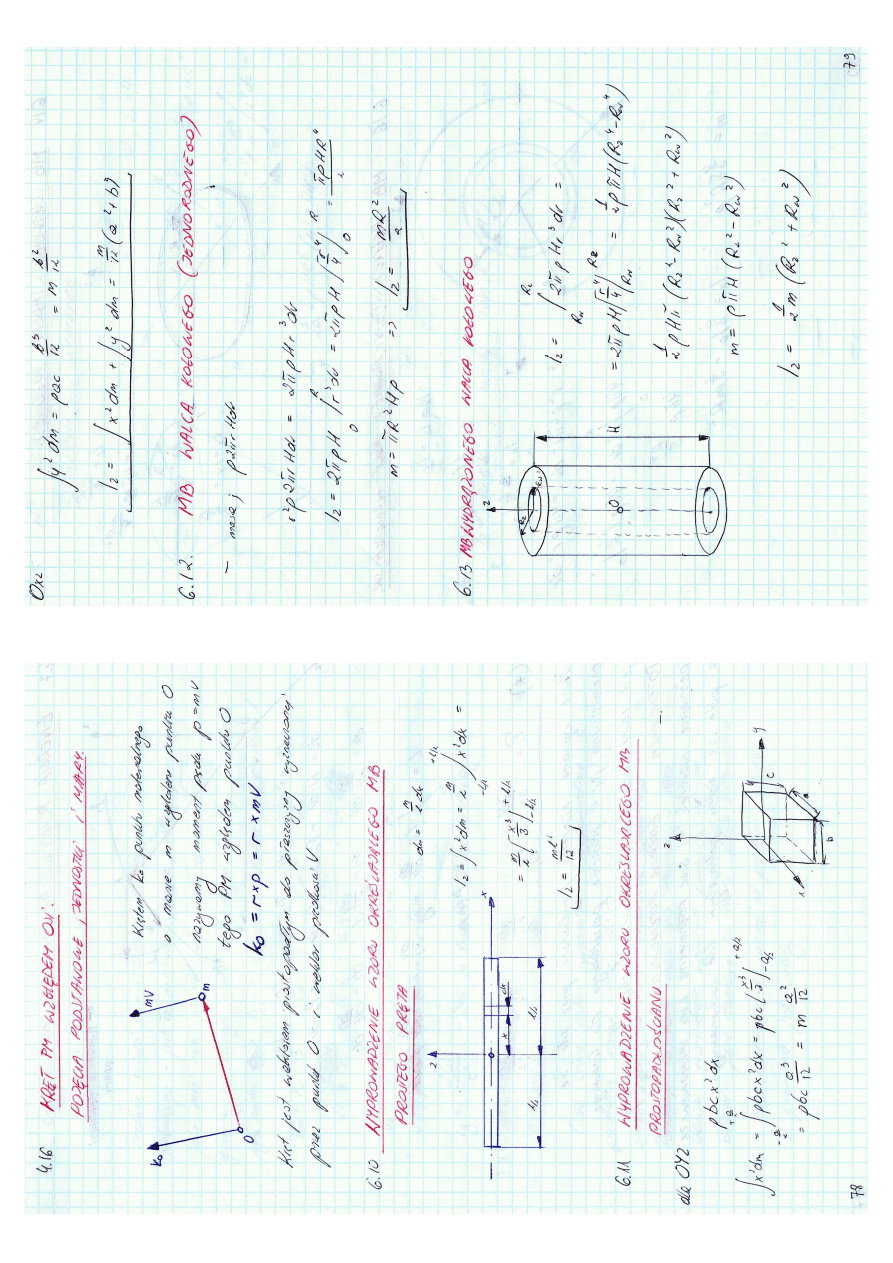 4.16 KRĘT PM WZGLĘDEM OSI.
POJĘCIA PODSTAWOWE, JEDNOSTKI I MIARY.
Krętem ko punktu materialnego
o masie m względem punktu O
nazywamy moment pędu p=mV
tego PM względem punktu O
ko = r×p = r×mV
ko
mV
m
O
Kręt jest wektorem prostopadłym do płaszczyzny wyznaczonej
przez punkt O i wektor prędkości V
6.10 WYPROWADZENIE WZORU OKREŚLAJĄCEGO MB
PROSTEGO PRĘTA
z
x
x
dx
dm = m/L dx
Iz = ∫x²dm = m/L ∫x²dx =
= m/L [x³/3]
Iz = mL²/12
6.11 WYPROWADZENIE WZORU OKREŚLAJĄCEGO MB
PROSTOPADŁOŚCIANU
dla OYZ
ρbcx²dx
∫x²dm = ∫ρbcx²dx = ρbc[x³/3] +a/2 -a/2
= ρbc a³/12 = m a²/12
z
y
x
c
b
a
78
Oxz
∫y²dm = ρac b³/12 = m b²/12
Iz = ∫x²dm + ∫y²dm = m/12 (a²+b²)
6.12. MB WALCA KOŁOWEGO (JEDNORODNEGO)
– masa; ρ2πrHdr
r²ρ2πrHdr = 2πρHr³dr
Iz = 2πρH ∫r³dr = 2πρH [r⁴/4] R 0 = πρHR⁴/2
m = πR²Hρ => Iz = mR²/2
6.13 MB WYDRĄŻONEGO WALCA KOŁOWEGO
z
Rz
Rw
O
H
Iz = ∫ 2πρHr³dr =
= 2πρH[r⁴/4] Rz Rw = 1/2 ρπH(Rz⁴-Rw⁴)
1/2 ρHπ (Rz²-Rw²)(Rz²+Rw²)
m = ρπH(Rz²-Rw²)
Iz = 1/2 m(Rz²+Rw²)
79